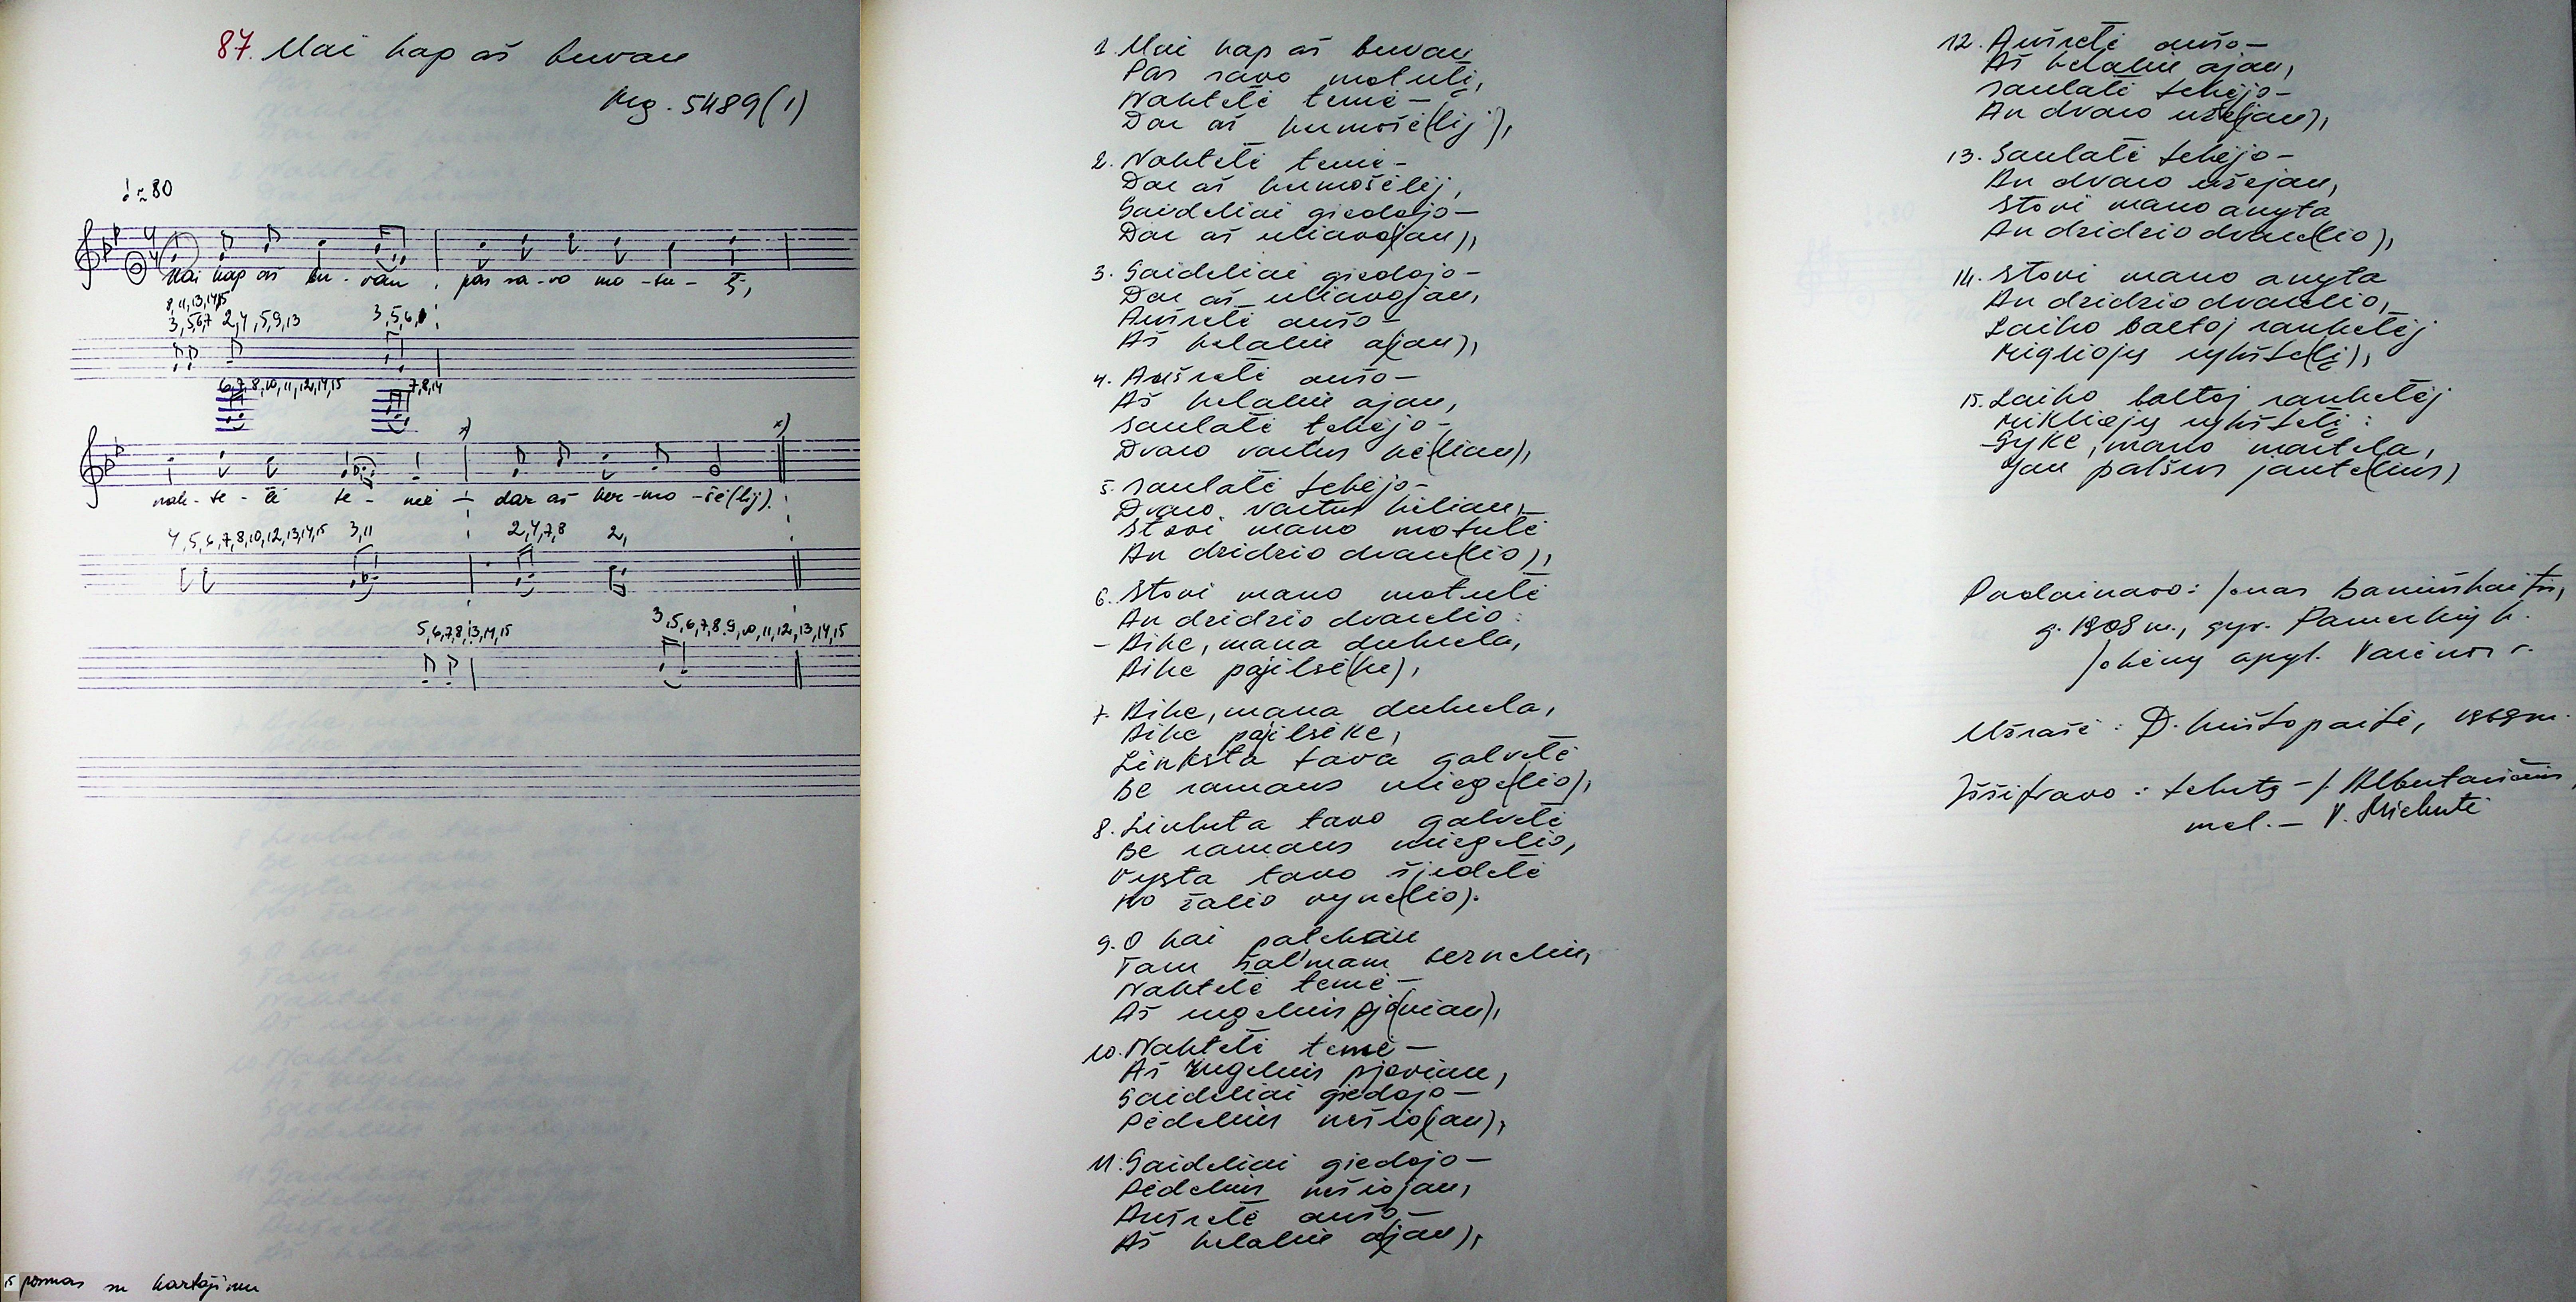 87. Uai kap aš buvau
Mg. 5489(1)
♩ ≈ 80
Uai kap aš bu - vau pas sa - vo mo - tu - tį,
8,11,13,14,15
3,5,6,7 2,4,5,9,13 3,5,6,
6,7,8,10,11,12,14,15 7,8,14
nak - te - lė te - mė – dar aš ker - mo - šė(lij).
4,5,6,7,8,10,12,13,14,15 3,11 2,4,7,8 2,
5,6,7,8,13,14,15 3,5,6,7,8,9,10,11,12,13,14,15
15 posmas su kartojimu
1. Uai kap aš buvau
Pas savo motutį,
Naktelė temė –
Dar aš kermošė(lij),
2. Naktelė temė –
Dar aš kermošėlij,
Gaideliai giedojo –
Dar aš uliavo(jau),
3. Gaideliai giedojo –
Dar aš uliavojau,
Aušrelė aušo –
Aš kelaliu a(jau),
4. Aušrelė aušo –
Aš kelaliu ajau,
Saulałė tekėjo –
Dvaro vartus kė(liau),
5. Saulałė tekėjo –
Dvaro vartus kėliau,
Stovi mano motulė
An dzidzio dvare(lio),
6. Stovi mano motulė
An dzidzio dvarelio:
– Aike, mana dukrela,
Aike pajilsė(ke),
7. Aike, mana dukrela,
Aike pajilsėke,
Linksta tava galvelė
Be ramaus miege(lio),
8. Linksta tavo galvelė
Be ramaus miegelio,
Vysta tavo šjedelė
No žalio vyne(lio).
9. O kai patekau
Tam šal'mam berneliu,
Naktelė temė –
Aš rugelius pjo(viau),
10. Naktelė temė –
Aš rugelius pjoviau,
Gaideliai giedojo –
Pėdelius nešio(jau),
11. Gaideliai giedojo –
Pėdelius nešiojau,
Aušrelė aušo –
Aš kelaliu a(jau),
12. Aušrelė aušo –
Aš kelaliu ajau,
Saulałė tekėjo –
An dvaro užė(jau),
13. Saulałė tekėjo –
An dvaro užėjau,
Stovi mano anyta
An dzidzio dvare(lio),
14. Stovi mano anyta
An dzidzio dvarelio,
Laiko baltoj rankelėj
Migliojų rykšte(lį),
15. Laiko baltoj rankelėj
Mikliojų rykštelį:
– Gyke, mano martela,
Jau palšus jaute(lius)
Padainavo: Jonas Baniuškaitis,
g. 1908 m., gyv. Pamerkių k.
Jakėnų apyl. Varėnos r.
Užrašė: D. Krištopaitė, 1969 m.
Iššifravo: tekstą – J. Albertavičius,
mel. – V. Misevičienė